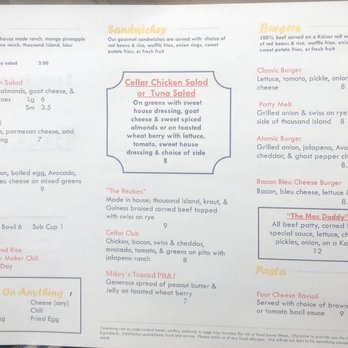 made ranch, mango pineapple
ranch, thousand island, bleu
salad 3.00
Salad
almonds, goat cheese, &
Lg 6
Sm 3.5
parmesan cheese, and
7
bacon, boiled egg, Avocado,
bleu cheese on mixed greens
9
Bowl 6 Sup Cup 1
and Rice
Maker Chili
Day
On Anything 1
Cheese (any)
Chili
Fried Egg
Sandwiches
Our gourmet sandwiches are served with choice of
red beans & rice, waffle fries, onion rings, sweet
potato fries, or fresh fruit
Cellar Chicken Salad
or Tuna Salad
On greens with sweet
house dressing, goat
cheese & sweet spiced
almonds or on toasted
wheat bread with
lettuce, tomato, sweet house
dressing & choice of side
8
"The Reuben"
Made in house; thousand island, krout, &
Guiness braised corned beef topped
with swiss on rye
9
Cellar Club
Chicken, bacon, swiss & cheddar,
avocado, tomato, & greens on pita with
jalapeno ranch
8
Mikey's Toasted PB&J
Generous spread of peanut butter &
Jelly on toasted wheat berry
7
Burgers
100% beef served on a Kaiser roll with
red beans & rice, waffle fries, onion
potato fries, or fresh fruit
Classic Burger
Lettuce, tomato, pickle, onion
cheese 8
Patty Melt
Grilled onion & swiss on rye
side of thousand island 8
Atomic Burger
Grilled onion, jalapeno, Avoc
cheddar, & ghost pepper ch
8
Bacon Bleu Cheese Burger
Bacon, bleu cheese, lettuce
8
"The Mac Daddy"
All beef patty, corned
special sauce, lettuce, ch
pickles, onion, on a Ka
12
Pasta
Four Cheese Ravioli
Served with choice of brown
or tomato basil sauce 9